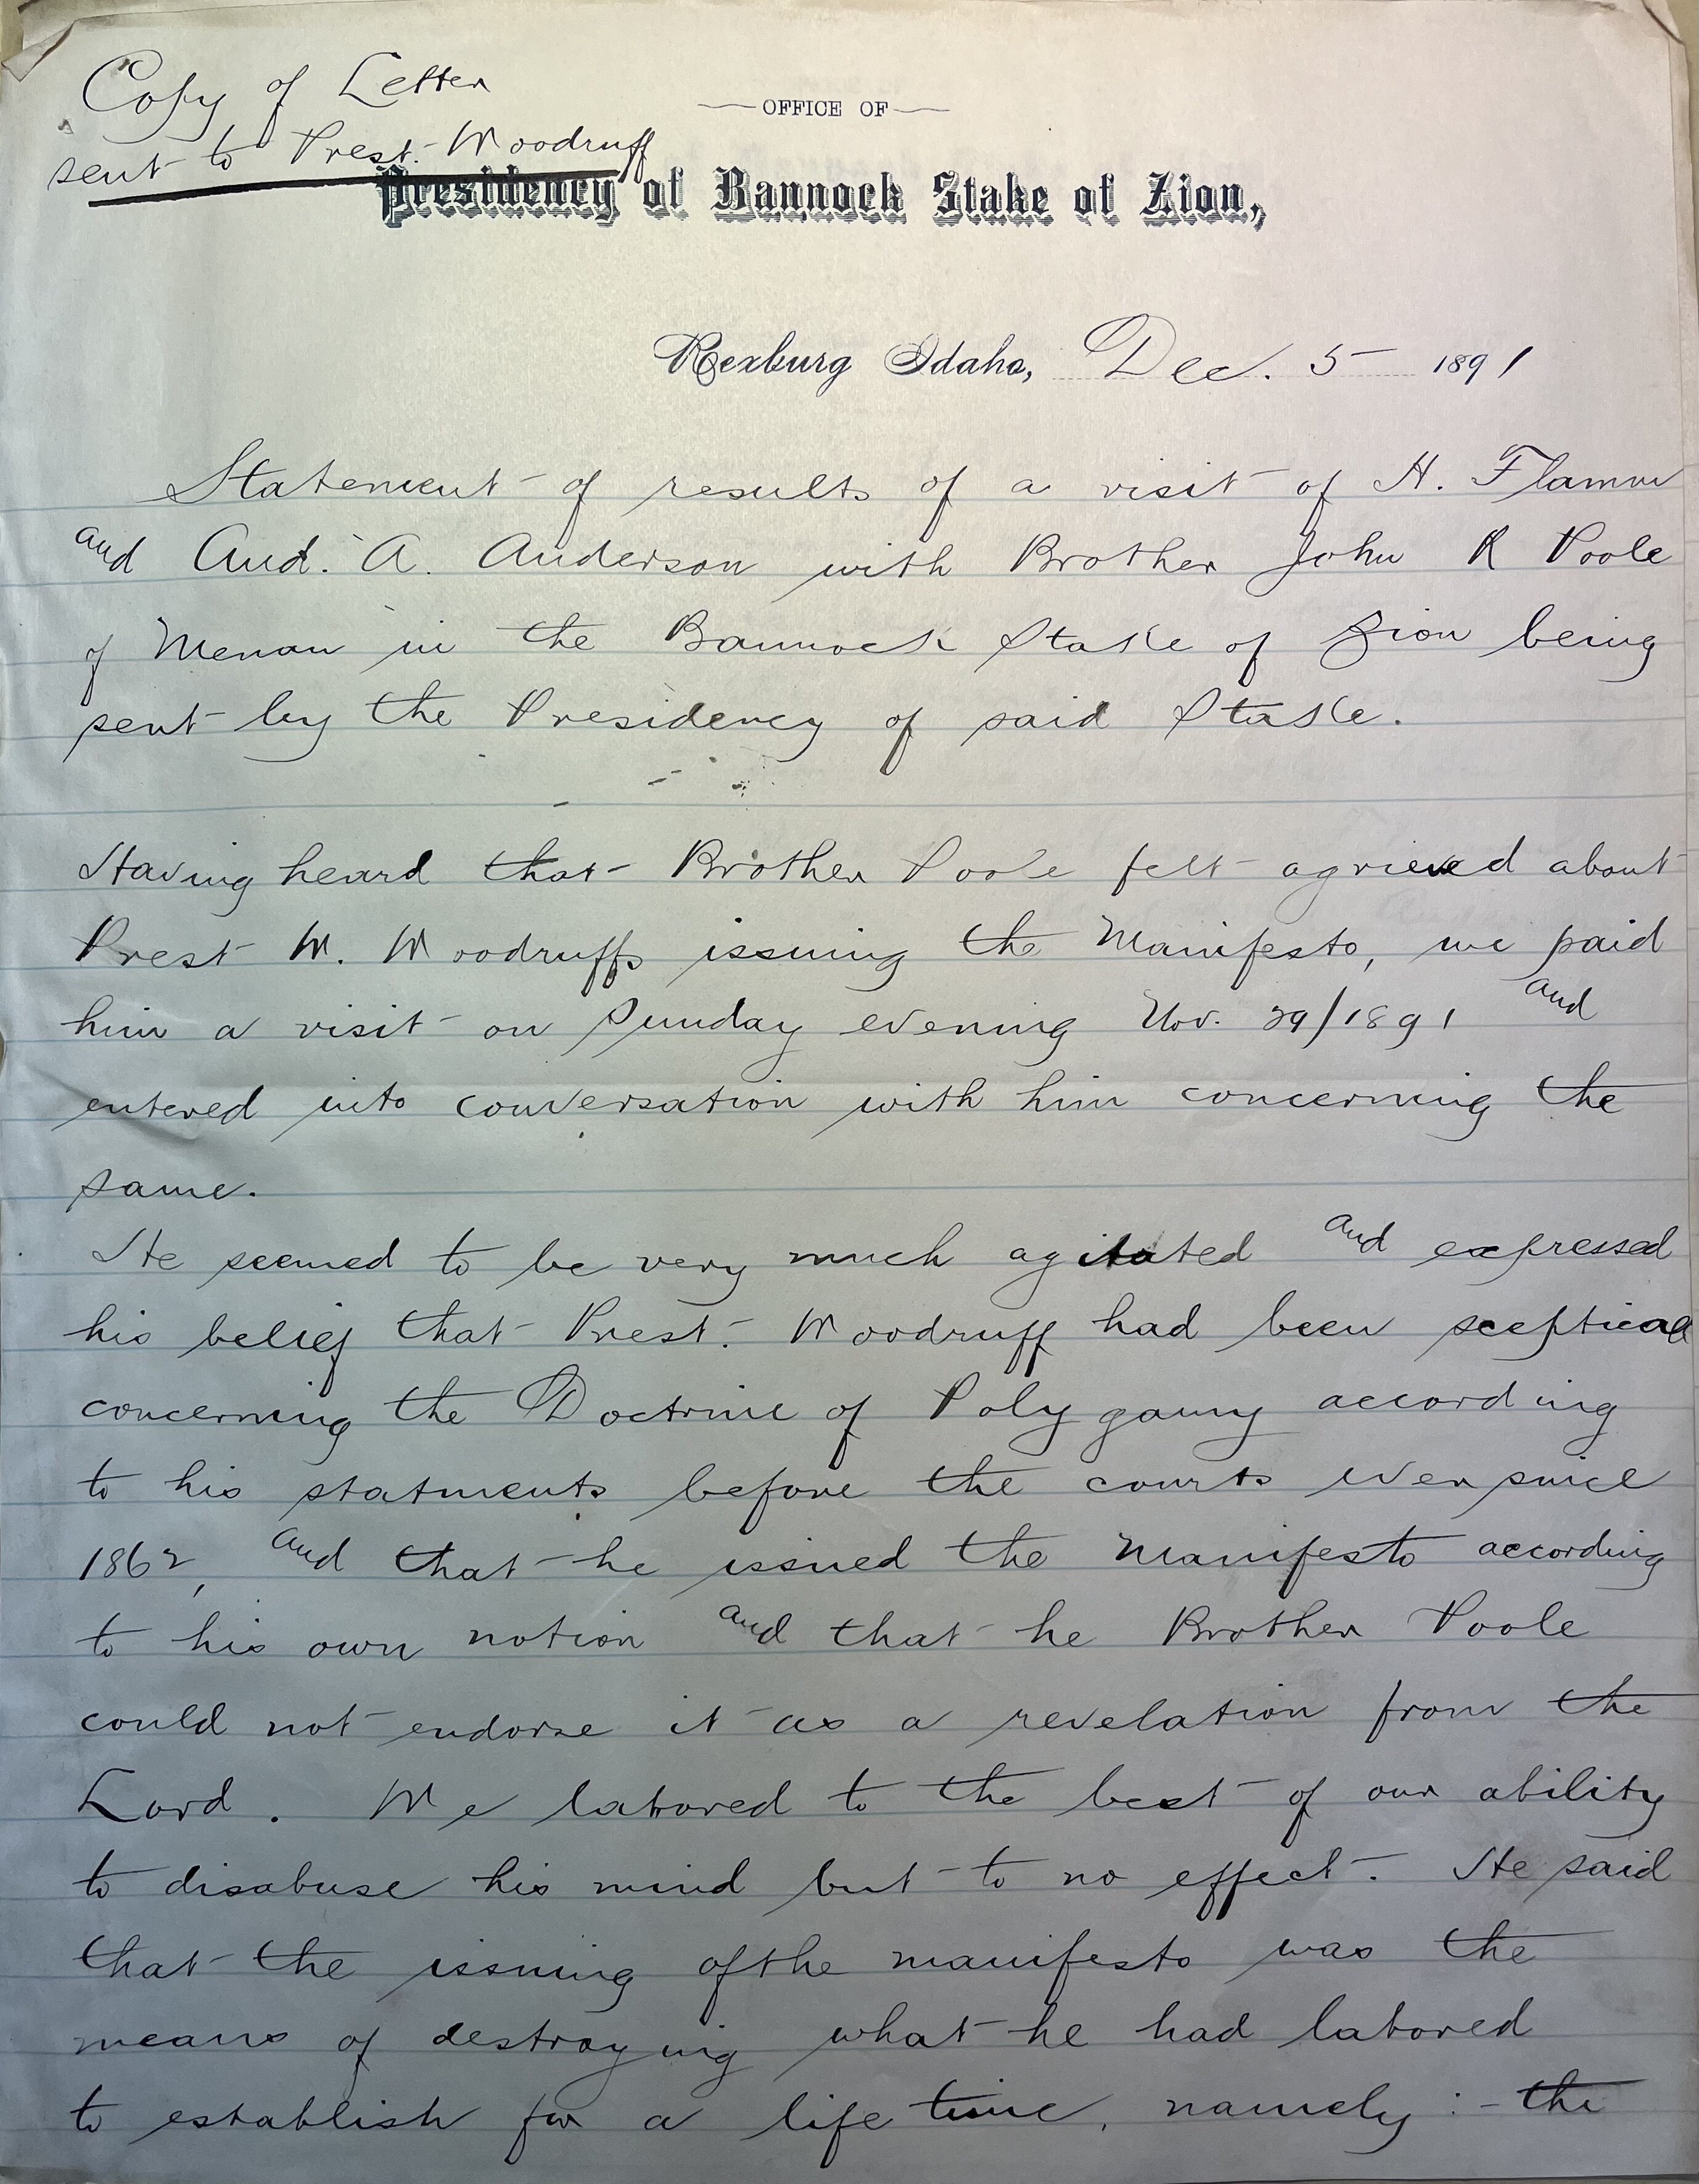 Copy of Letter
sent to Prest. Woodruff
OFFICE OF
Presidency of Bannock Stake of Zion,
Rexburg Idaho, Dec. 5 1891
Statement of results of a visit of H. Flamm
and And. A. Anderson with Brother John R Poole
of Menan in the Bannock Stake of Zion being
sent by the Presidency of said Stake.
Having heard that Brother Poole felt agrieved about
Prest W. Woodruffs issuing the Manifesto, we paid
him a visit on Sunday evening Nov. 29/1891 and
entered into conversation with him concerning the
same.
He seemed to be very much agitated and expressed
his belief that Prest. Woodruff had been sceptical
concerning the Doctrine of Polygamy according
to his statments before the courts ever since
1862, and that he issued the Manifesto according
to his own notion and that he Brother Poole
could not endorse it as a revelation from the
Lord. We labored to the best of our ability
to disabuse his mind but to no effect. He said
that the issuing of the manifesto was the
means of destroying what he had labored
to establish for a life time, namely :- the